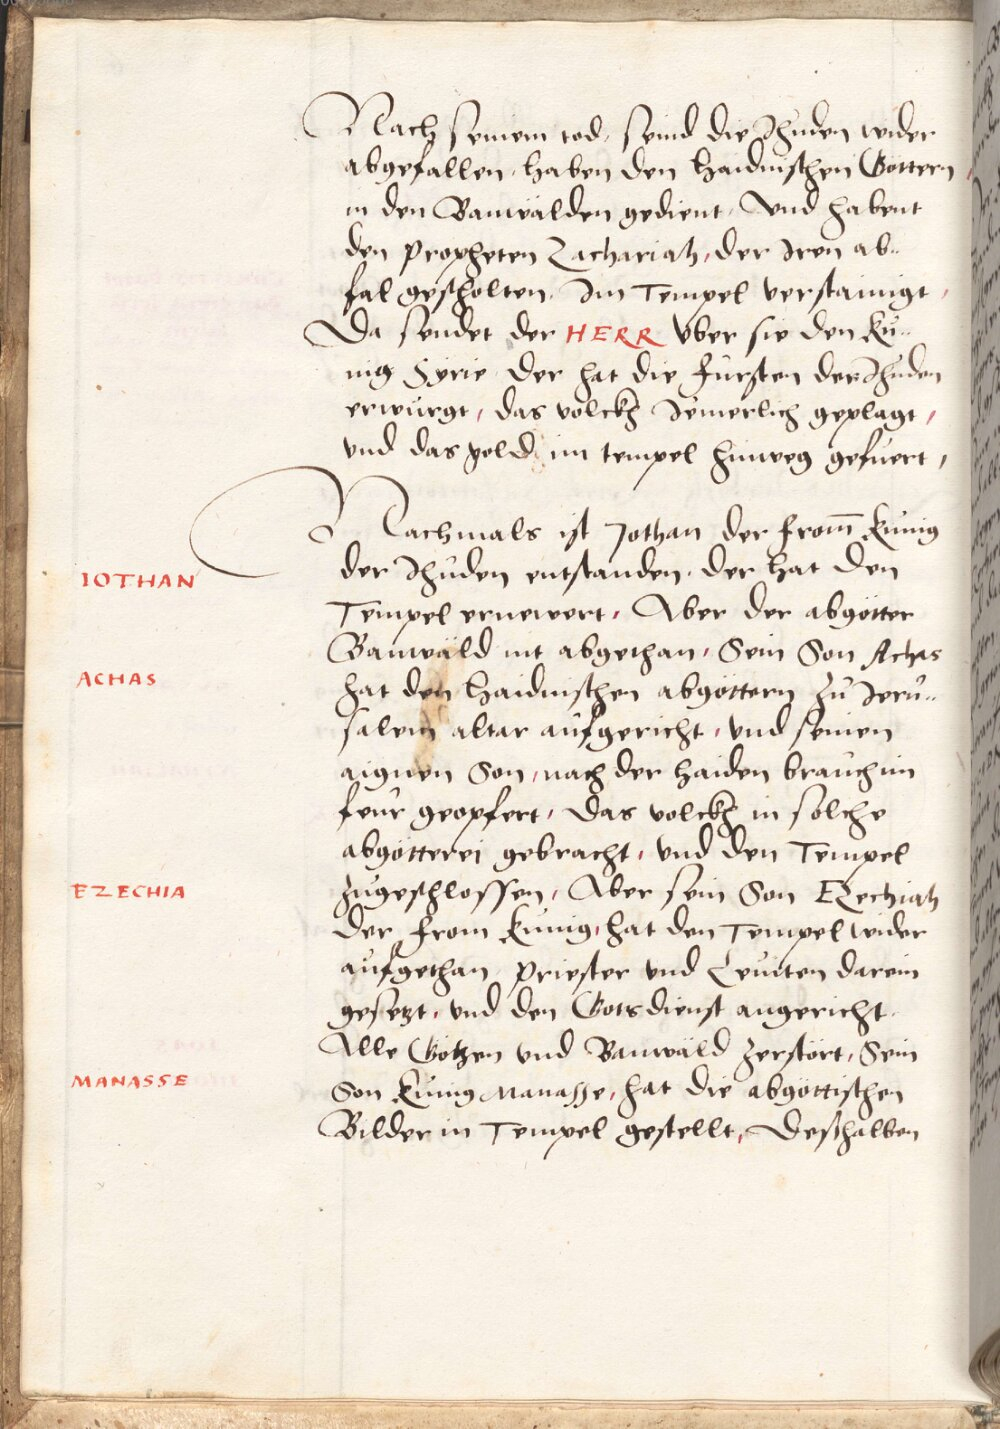 Nach seinem tod, seind die Jhuden wider
abgefallen, haben den haidnischen Göttern
in den Banwälden gedient, Und habent
den Propheten Zachariah, der Iren ab-
fal gescholten, Im Tempel verstainigt,
Da sendet der HERR vber sie den Kü-
nig Syrie, der hat die fürsten der Jhuden
erwürgt, das volckh Jemerlich geplagt,
vnd das gold im tempel hinweg gefuert,
Nachmals ist Jothan der from̄ Künig
der Jhuden entstanden, der hat den
IOTHAN
Tempel ernewert, Aber der abgötter
Banwäld nit abgethan, Sein Son Achas
ACHAS
hat den haidnischen abgöttern zů Jeru-
salem altar aufgericht, vnd seinen
aignen Son, nach der haiden brauch im
feur geopfert, das volckh in solche
abgötterei gebracht, vnd den Tempel
zugeschlossen, Aber sein Son Ezechiah
EZECHIA
der from Künig, hat den Tempel wider
aufgethan, Priester vnd Leuiten darein
gesetzt, vnd den Gotsdienst angericht,
Alle Götzen vnd Banwäld zerstört, Sein
Son Künig Manasse, hat die abgöttischen
MANASSE
Bilder in Tempel gestellt, Deßhalben